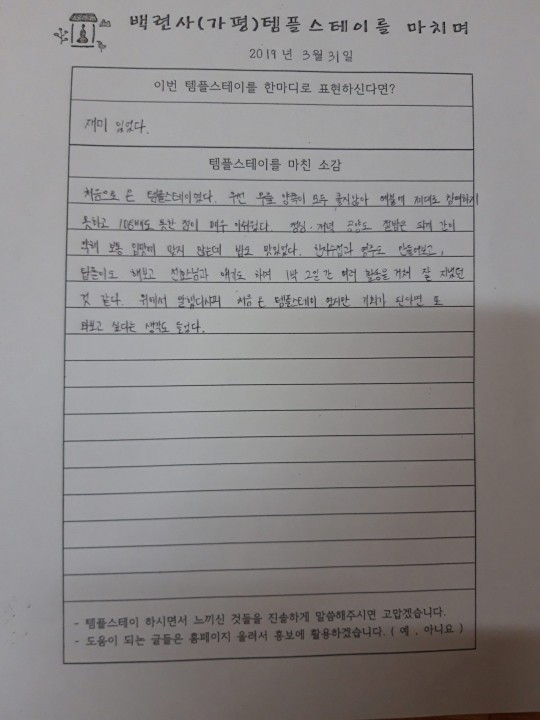 백련사(가평)템플스테이를 마치며
2019년 3월 31일
이번 템플스테이를 한마디로 표현하신다면?
재미 있었다.
템플스테이를 마친 소감
처음으로 온 템플스테이였다. 우선 무릎 양쪽이 모두 좋지않아 예불에 제대로 참여하지
못하고 108배도 못한 점이 매우 아쉬웠다. 점심·저녁 공양도 절밥은 되게 간이
약해 보통 입맛에 맞지 않는데 밥도 맛있었다. 염주도 만들어보고,
탑돌이도 해보고 1박 2일간 여러 활동을 거쳐 잘 지냈던
것 같다. 위에서 말했다시피 처음 온 템플스테이 였지만 기회가 된다면 또
와보고 싶다는 생각도 들었다.
- 템플스테이 하시면서 느끼신 것들을 진솔하게 말씀해주시면 고맙겠습니다.
- 도움이 되는 글들은 홈페이지 올려서 홍보에 활용하겠습니다. ( 예 , 아니요 )